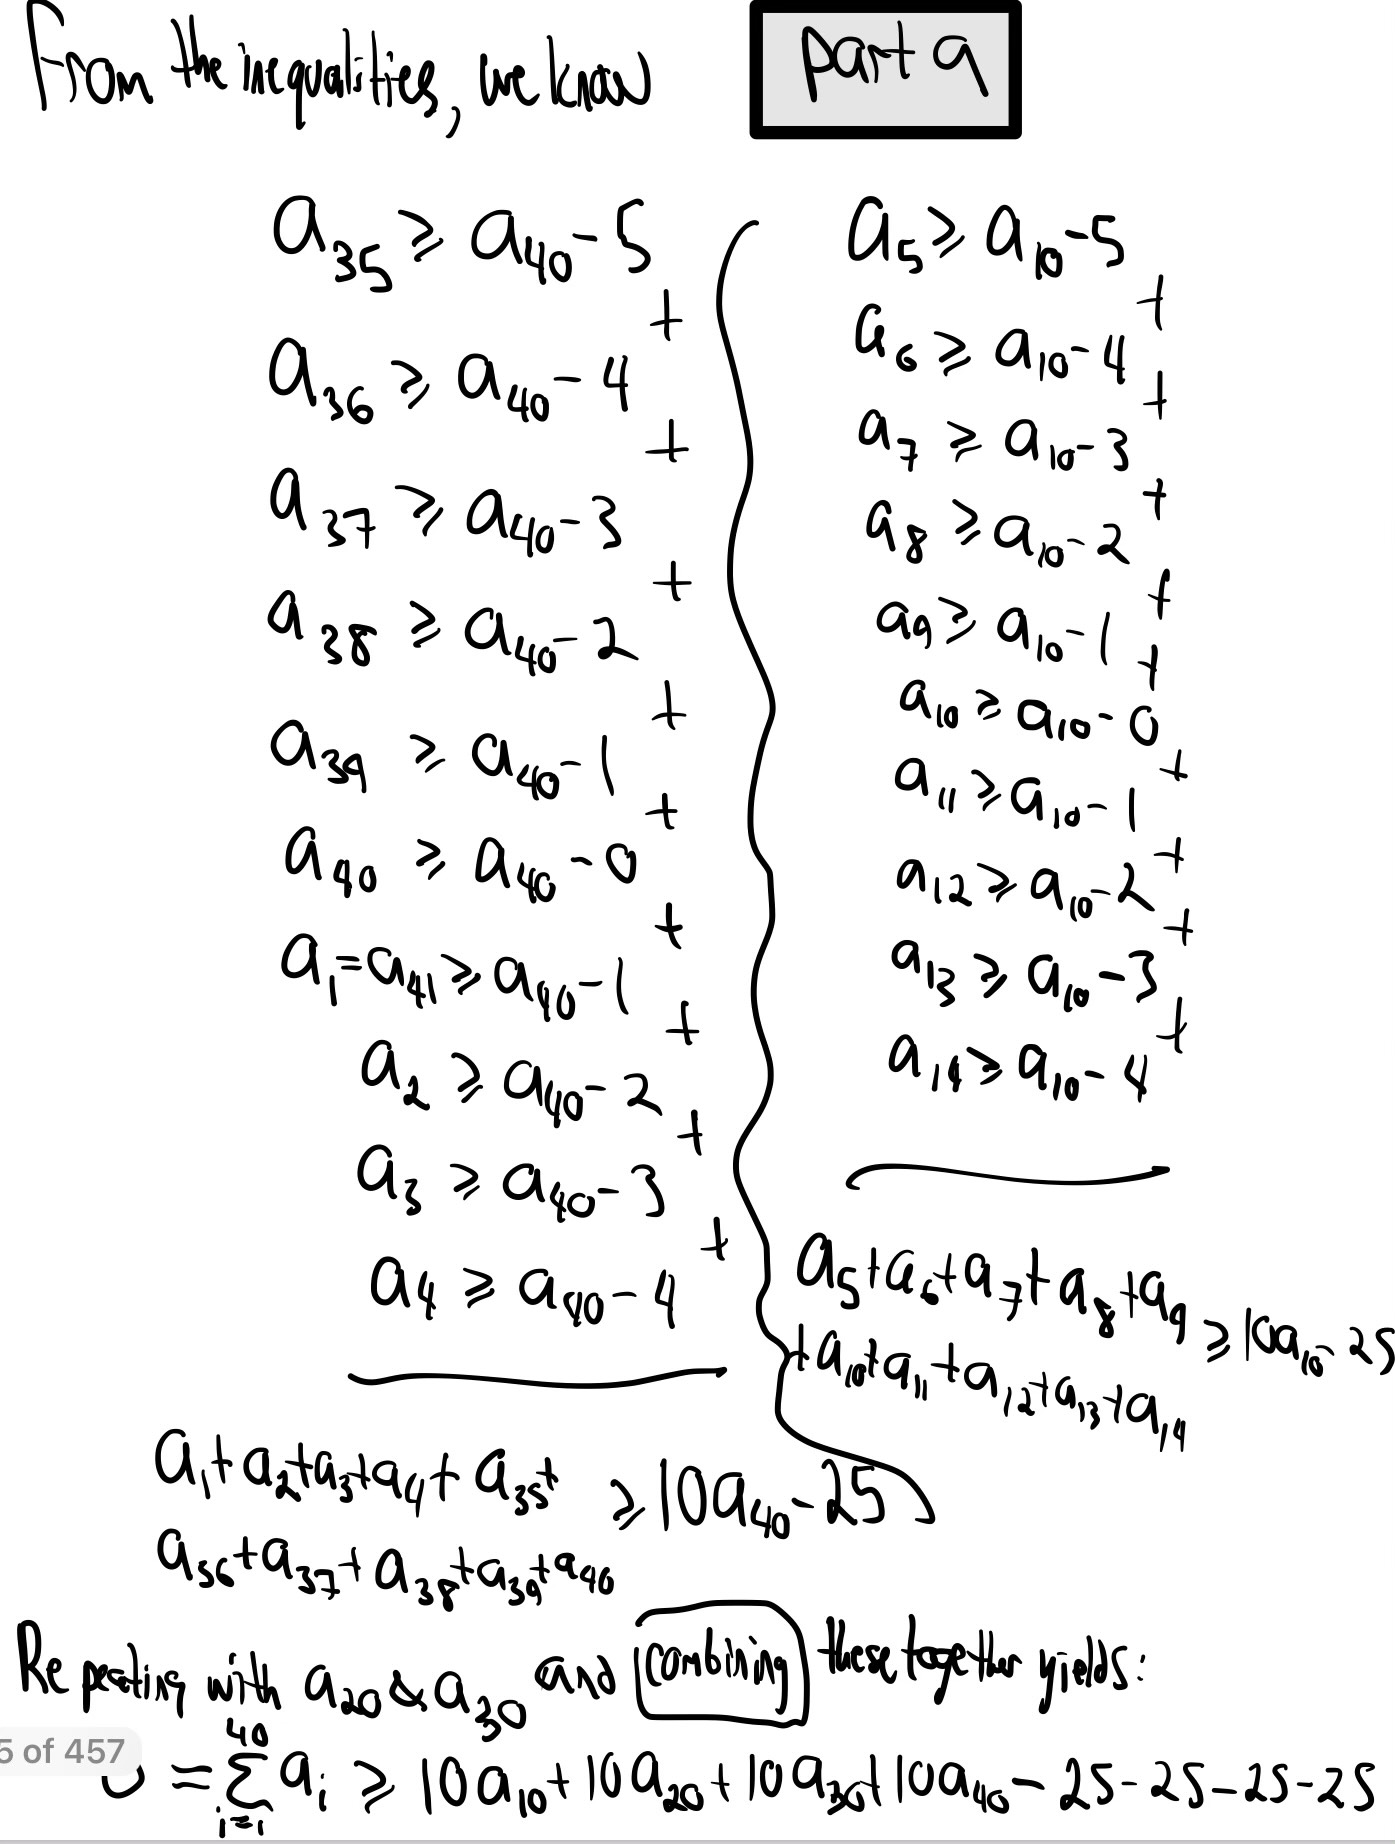 From the inequalities, we know
part a
a₃₅ ⩾ a₄₀ - 5
+
a₃₆ ⩾ a₄₀ - 4
+
a₃₇ ⩾ a₄₀ - 3
+
a₃₈ ⩾ a₄₀ - 2
+
a₃₉ ⩾ a₄₀ - 1
+
a₄₀ ⩾ a₄₀ - 0
+
a₁ = a₄₁ ⩾ a₄₀ - 1
+
a₂ ⩾ a₄₀ - 2
+
a₃ ⩾ a₄₀ - 3
+
a₄ ⩾ a₄₀ - 4
a₁ + a₂ + a₃ + a₄ + a₃₅ + ⩾ 10a₄₀ - 25
a₃₆ + a₃₇ + a₃₈ + a₃₉ + a₄₀
a₅ ⩾ a₁₀ - 5
+
a₆ ⩾ a₁₀ - 4
+
a₇ ⩾ a₁₀ - 3
+
a₈ ⩾ a₁₀ - 2
+
a₉ ⩾ a₁₀ - 1
+
a₁₀ ⩾ a₁₀ - 0
+
a₁₁ ⩾ a₁₀ - 1
+
a₁₂ ⩾ a₁₀ - 2
+
a₁₃ ⩾ a₁₀ - 3
+
a₁₄ ⩾ a₁₀ - 4
a₅ + a₆ + a₇ + a₈ + a₉ ⩾ 10a₁₀ - 25
+ a₁₀ + a₁₁ + a₁₂ + a₁₃ + a₁₄
Repeating with a₂₀ & a₃₀ and combining these together yields:
5 of 457
= ∑ᵢ₌₁⁴⁰ aᵢ ⩾ 10a₁₀ + 10a₂₀ + 10a₃₀ + 10a₄₀ - 25 - 25 - 25 - 25